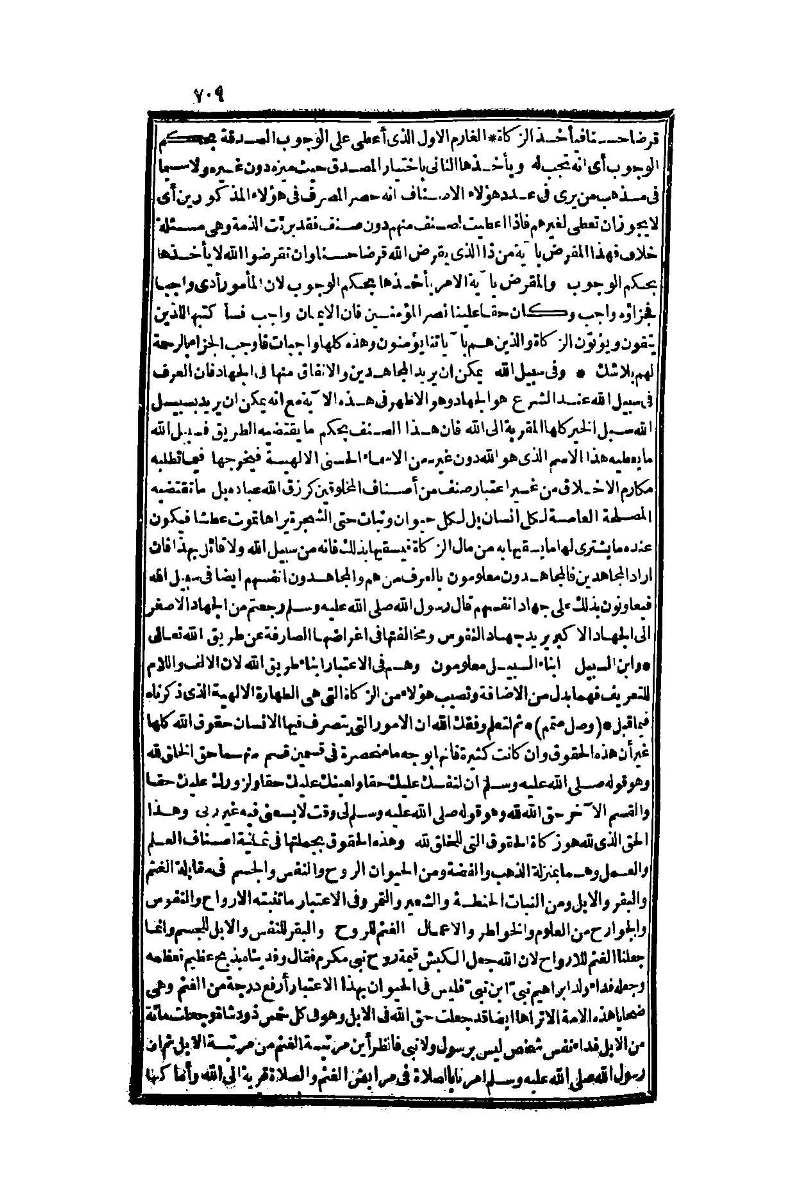 ٧٠٩
قرضا حسنا فيأخذ الزكاة * الغارم الاول الذى أعطى على الوجوب الصدقة بحكم
الوجوب أى انه تجب له ويأخذها الثانى باختيار المصدق حيث ميزه دون غيره ولا سيما
فى مذهب من يرى فى عدد هؤلاء الاصناف انه حصر المصرف فى هؤلاء المذكورين أى
لا يجوز ان تعطى لغيرهم فاذا اعطيت لصنف منهم دون صنف فقد برئت الذمة وهى مسئلة
خلاف فهذا المقرض بآية من ذا الذى يقرض الله قرضا حسنا وان تقرضوا الله لا يأخذها
بحكم الوجوب والمقرض بآية الامر يأخذها بحكم الوجوب لان المأمور أدى واجبا
فجزاؤه واجب وكان حقا علينا نصر المؤمنين فان الايمان واجب فسأ كتبها للذين
يتقون ويؤتون الزكاة والذين هم بآياتنا يؤمنون وهذه كلها واجبات فاوجب الجزاء بالرحمة
لهم بلا شك * وفى سبيل الله يمكن ان يريد المجاهدين والانفاق منها فى الجهاد فان العرف
فى سبيل الله عند الشرع هو الجهاد وهو الاظهر فى هذه الآية مع انه يمكن ان يريد بسبيل
الله سبل الخير كلها المقربة الى الله فان هذا الصنف بحكم ما يقتضيه الطريق فسبيل الله
ما يعطيه هذا الاسم الذى هو الله دون غيره من الاسماء الحسنى الالهية فيخرجها فيما تطلبه
مكارم الاخلاق من غير اعتبار صنف من أصناف المخلوقين كرزق الله عباده بل ما تقتضيه
المصلحة العامة لكل انسان بل لكل حيوان ونبات حتى الشجرة يراها تموت عطشا فيكون
عنده ما يشترى لها ما يسقيها به من مال الزكاة فيسقيها بذلك فانه من سبيل الله ولا قائل بهذا فان
اراد المجاهدين فالمجاهدون معلومون بالعرف من هم والمجاهدون انفسهم ايضا فى سبيل الله
فيعاونون بذلك على جهاد انفسهم قال رسول الله صلى الله عليه وسلم رجعتم من الجهاد الاصغر
الى الجهاد الاكبر يريد جهاد النفوس ومخالفتها فى اغراضها الصارفة عن طريق الله تعالى
* وابن السبيل ابناء السبيل معلومون وهم فى الاعتبار ابناء طريق الله لان الالف واللام
للتعريف فهما بدل من الاضافة ونصيب هؤلاء من الزكاة التى هى الطهارة الالهية الذى ذكرناه
فيما قبل * (وصل متمم) * ثم لتعلم وفقك الله ان الامور التى يتصرف فيها الانسان حقوق الله كلها
غير أن هذه الحقوق وان كانت كثيرة فانها بوجه ما منحصرة فى قسمين قسم منهما حق الخلق لله
وهو قوله صلى الله عليه وسلم ان لنفسك عليك حقا ولعينك عليك حقا ولزورك عليك حقا
والقسم الآخر حق الله لله وهو قوله صلى الله عليه وسلم لى وقت لا يسعنى فيه غير ربى وهذا
الحق الذى لله هو زكاة الحقوق التى للخلق لله وهذه الحقوق بجملتها فى ثمانية اصناف العلم
والعمل وهما بمنزلة الذهب والفضة ومن الحيوان الروح والنفس والجسم فى مقابلة الغنم
والبقر والابل ومن النبات الحنطة والشعير والتمر وفى الاعتبار ما تنبته الارواح والنفوس
والجوارح من العلوم والخواطر والاعمال الغنم للروح والبقر للنفس والابل للجسم وانما
جعلنا الغنم للارواح لان الله جعل الكبش قيمة روح نبى مكرم فقال وفديناه بذبح عظيم فعظمه
وجعله فداء ولد ابراهيم نبى ابن نبى فليس فى الحيوان بهذا الاعتبار أرفع درجة من الغنم وهى
ضحايا هذه الامة الا تراها ايضا قد جعلت حق الله فى الابل وهو فى كل خمس ذود شاة وجعلت مائة
من الابل فداء نفس شخص ليس برسول ولا نبى فانظر أين مرتبة الغنم من مرتبة الابل ثم ان
رسول الله صلى الله عليه وسلم امرنا بالصلاة فى مرابض الغنم والصلاة قربة الى الله وأماكنها